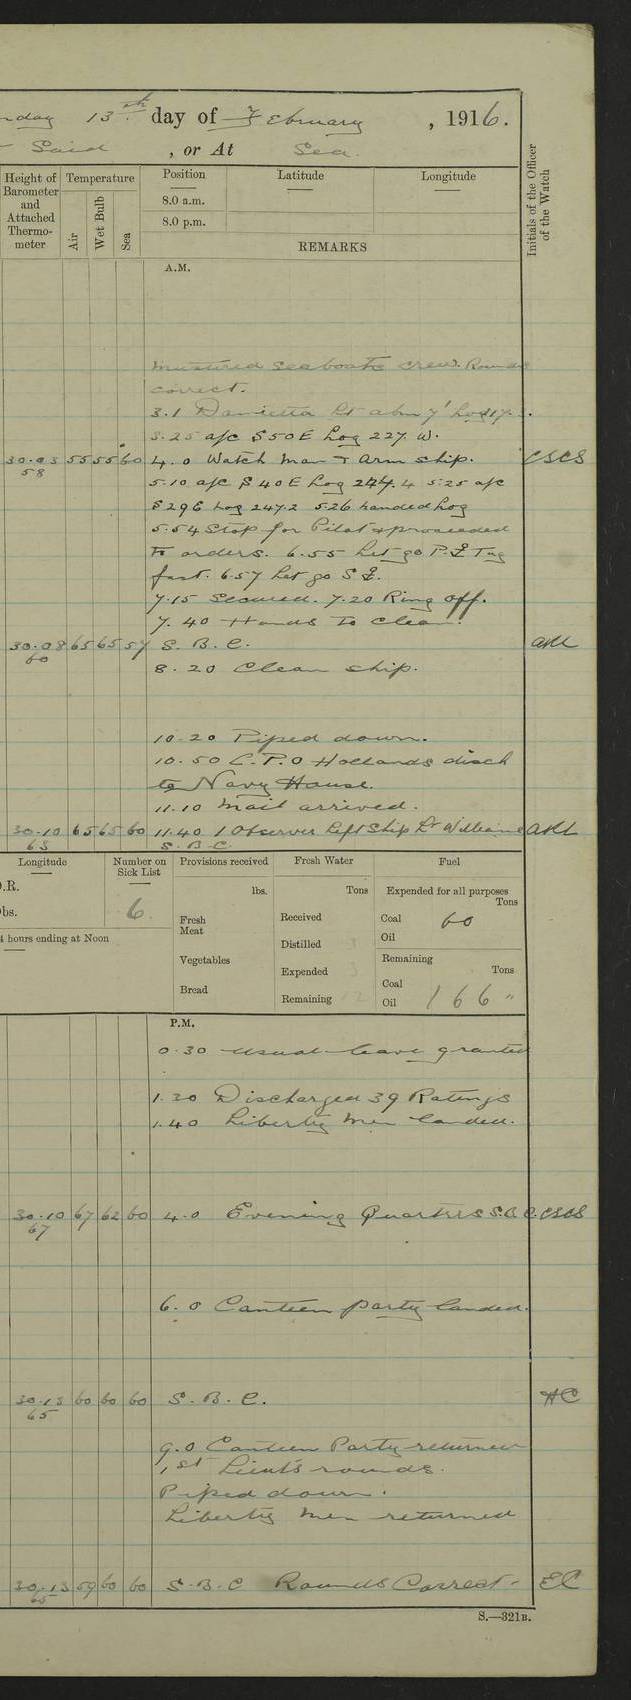 nday 13th day of February, 1916.
Said, or At Sea.
Height of Barometer and Attached Thermometer
Temperature
Air
Wet Bulb
Sea
Position
Latitude
Longitude
8.0 a.m.
8.0 p.m.
REMARKS
Initials of the Officer of the Watch
A.M.
Mustered seaboats crew. Rounds
correct.
3.1 Damietta Lt abm 7' Log 217.
3.25 a/c S50E Log 227. W.
30.03 55 55 60 4.0 Watch man & Arm ship. CSCS
58
5.10 a/c S40E Log 244.4 5.25 a/c
S29E Log 247.2 5.26 handed Log
5.54 Stop for Pilot & proceeded
to orders. 6.55 Let go P. Tug
fast. 6.57 Let go S
7.15 Secured. 7.20 Ring off.
7.40 Hands to clean.
30.08 65 65 57 S.B.C.
60
8.20 Clean ship.
10.20 Piped down.
10.50 C.P.O Hollands disch
to Navy House.
11.10 Mail arrived.
30.10 65 65 60 11.40 1 Observer left ship Lt Williams
63 S.B.C
Longitude
D.R.
Obs.
4 hours ending at Noon
Number on Sick List
6
Provisions received
lbs.
Fresh Meat
Vegetables
Bread
Fresh Water
Tons
Received
Distilled
Expended 3
Remaining 12
Fuel
Expended for all purposes
Tons
Coal 60
Oil
Remaining
Tons
Coal
Oil 166 "
P.M.
0.30 Usual leave granted
1.30 Discharged 39 Ratings
1.40 Liberty men landed.
30.10 67 62 60 4.0 Evening Quarters S.B.C. CSCS
67
6.0 Canteen party landed.
30.13 60 60 60 S.B.C. HC
65
9.0 Canteen Party returned
1st Lieut's rounds.
Piped down.
Liberty men returned
30.13 59 60 60 S.B.C Rounds Correct. EC
65
S.—321B.